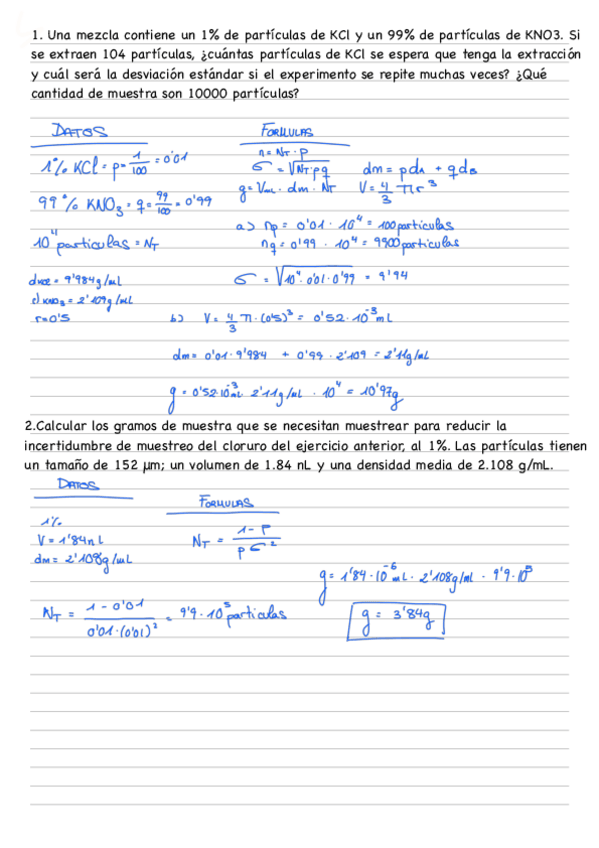 1. Una mezcla contiene un 1% de partículas de KCl y un 99% de partículas de KNO3. Si
se extraen 104 partículas, ¿cuántas partículas de KCl se espera que tenga la extracción
y cuál será la desviación estándar si el experimento se repite muchas veces? ¿Qué
cantidad de muestra son 10000 partículas?
DATOS
FORMULAS
1% KCl = p = 1/100 = 0'01
n = N_T · p
σ = √(N_T · pq)
dm = pd_A + qd_B
g = V_me · dm · N_T
V = 4/3 π r³
99% KNO₃ = q = 99/100 = 0'99
a) np = 0'01 · 10⁴ = 100 particulas
nq = 0'99 · 10⁴ = 9900 particulas
10⁴ particulas = N_T
σ = √(10⁴ · 0'01 · 0'99) = 9'94
= 9'984 g/mL
d KNO₃ = 2'109 g/mL
r = 0'5
b) V = 4/3 π · (0'5)³ = 0'52 · 10⁻³ mL
dm = 0'01 · 9'984 + 0'99 · 2'109 = 2'11 g/mL
g = 0'52 · 10⁻³ mL · 2'11 g/mL · 10⁴ = 10'97g
2.Calcular los gramos de muestra que se necesitan muestrear para reducir la
incertidumbre de muestreo del cloruro del ejercicio anterior, al 1%. Las partículas tienen
un tamaño de 152 µm; un volumen de 1.84 nL y una densidad media de 2.108 g/mL.
DATOS
FORMULAS
1%
V = 1'84 nL
dm = 2'108 g/mL
N_T = (1 - P)/(p σ²)
g = 1'84 · 10⁻⁶ mL · 2'108 g/ml · 9'9 · 10⁵
N_T = (1 - 0'01)/(0'01 · (0'01)²) = 9'9 · 10⁵ particulas
g = 3'84g